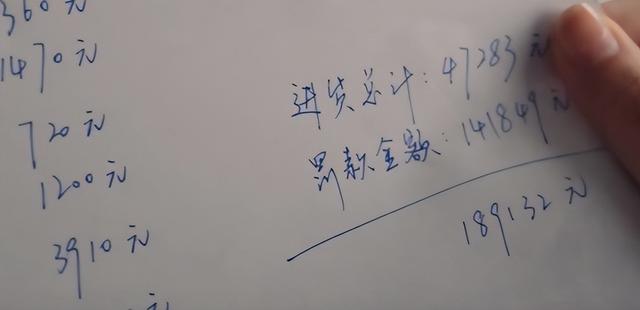 360元
1470元
720元
1200元
3910元
元
进货总计：47283元
罚款金额：141849元
189132元